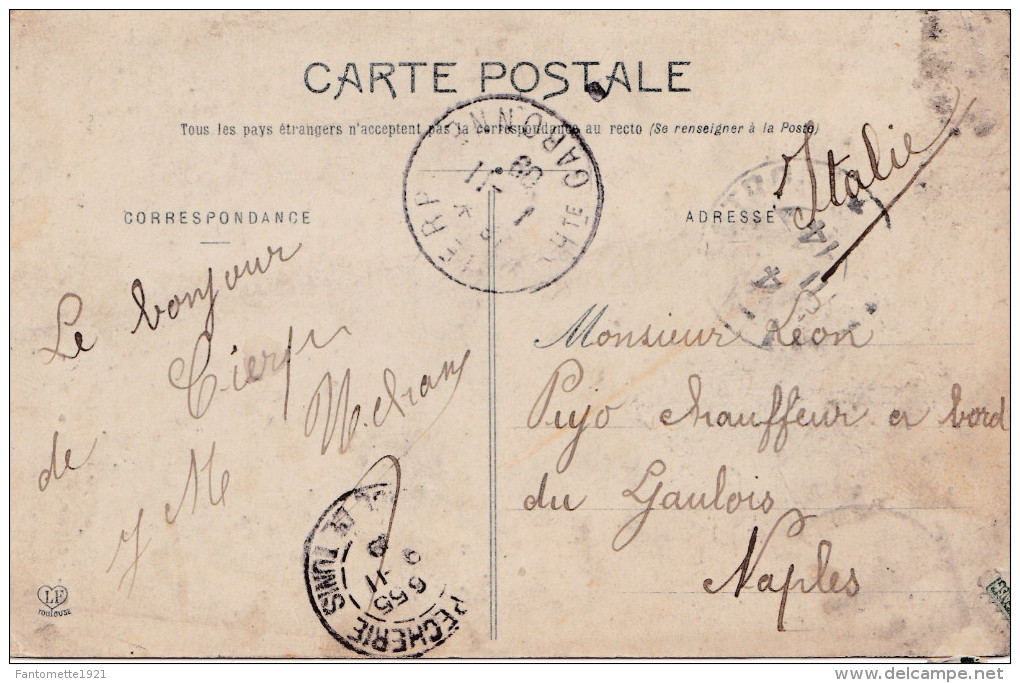 CARTE POSTALE
Tous les pays étrangers n'acceptent pas la correspondance au recto (Se renseigner à la Poste)
CORRESPONDANCE
ADRESSE
Italie
CIERP
HTE GARONNE
1
11
09
14
11
4
Le bonjour
de Cierp
Monsieur Léon
Pujo chauffeur a bord
du Gaulois
Naples
PÊCHERIE TUNIS
9
6 55
11
LF
TOULOUSE
Fantomette1921
delcampe.net